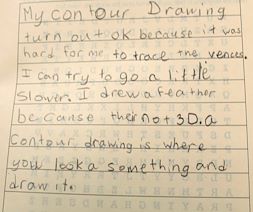 My contour Drawing
turn out ok because it was
hard for me to trace the vences.
I can try to go a little
Slower. I drew a feather
be cause their not 3D. a
Contour drawing is where
you look a something and
draw it.